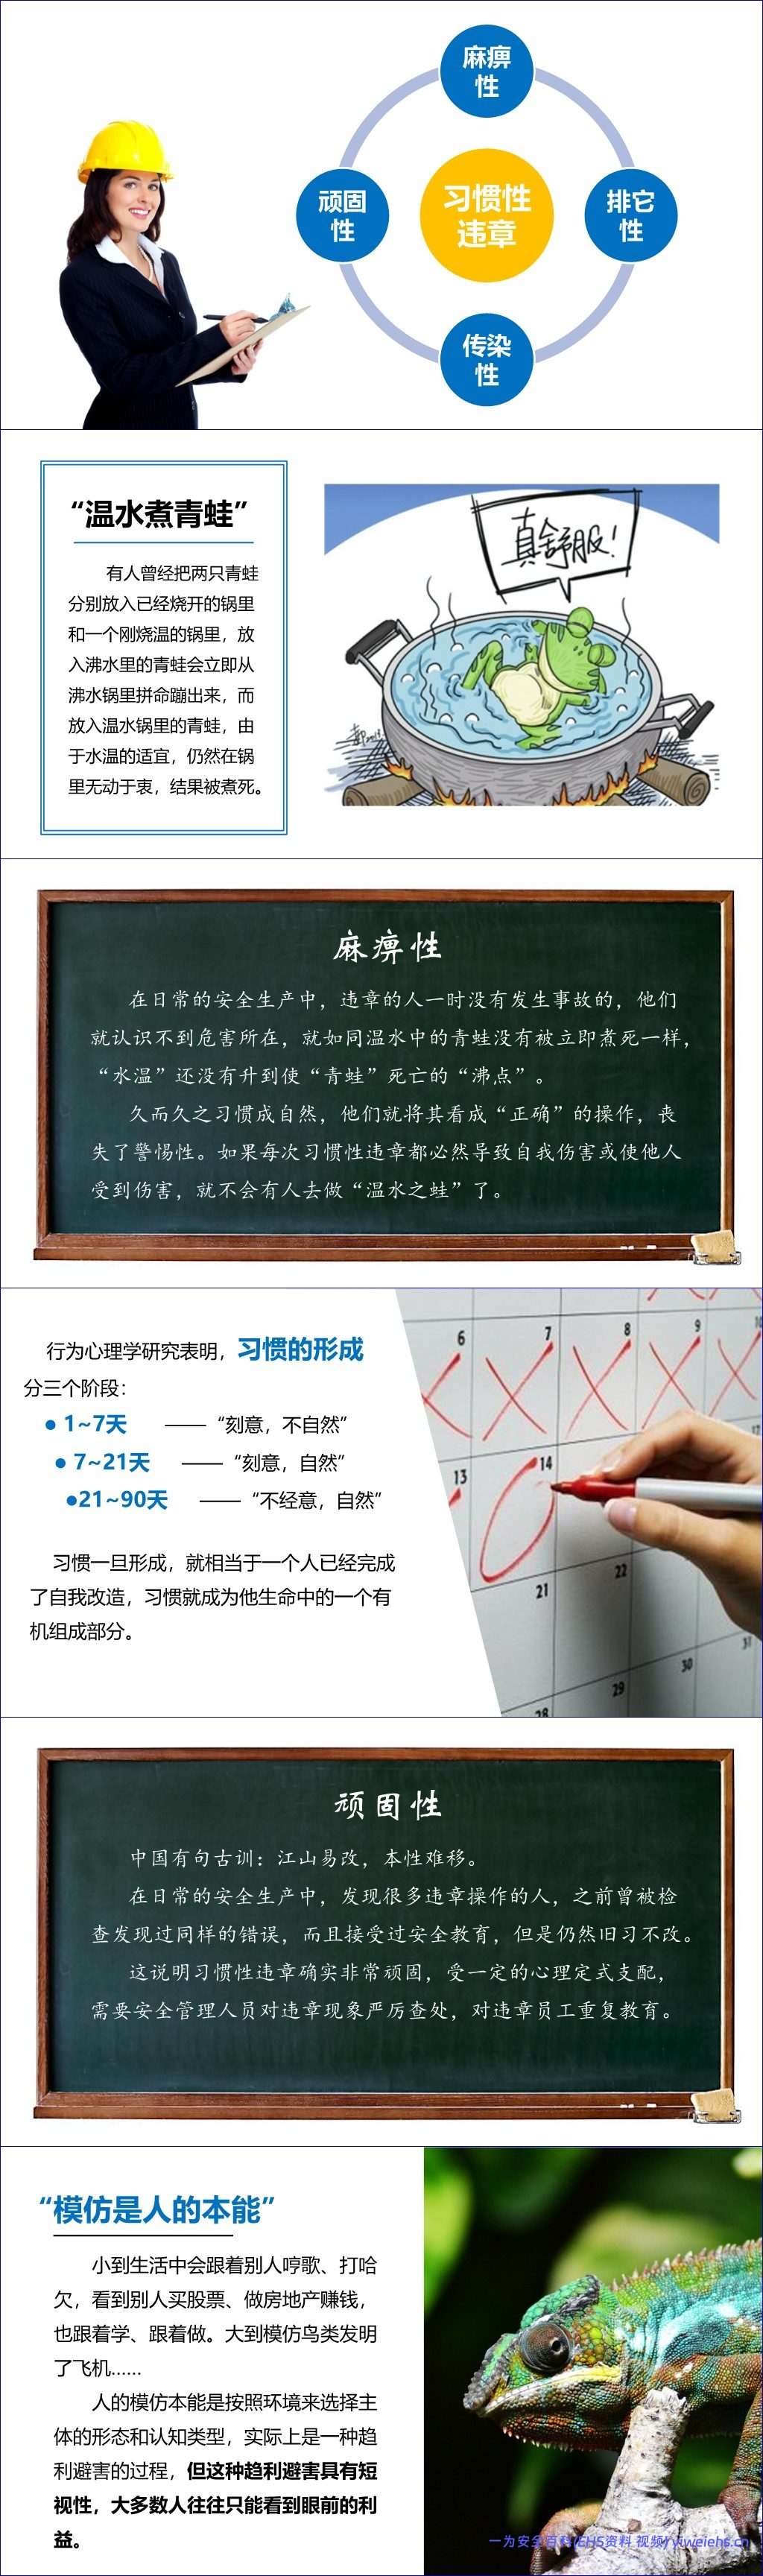 麻痹
性
顽固
性
习惯性
违章
排它
性
传染
性
“温水煮青蛙”
有人曾经把两只青蛙
分别放入已经烧开的锅里
和一个刚烧温的锅里，放
入沸水里的青蛙会立即从
沸水锅里拼命蹦出来，而
放入温水锅里的青蛙，由
于水温的适宜，仍然在锅
里无动于衷，结果被煮死。
真舒服！
麻痹性
在日常的安全生产中，违章的人一时没有发生事故的，他们
就认识不到危害所在，就如同温水中的青蛙没有被立即煮死一样，
“水温”还没有升到使“青蛙”死亡的“沸点”。
久而久之习惯成自然，他们就将其看成“正确”的操作，丧
失了警惕性。如果每次习惯性违章都必然导致自我伤害或使他人
受到伤害，就不会有人去做“温水之蛙”了。
行为心理学研究表明，习惯的形成
分三个阶段：
● 1~7天 ——“刻意，不自然”
● 7~21天 ——“刻意，自然”
●21~90天 ——“不经意，自然”
习惯一旦形成，就相当于一个人已经完成
了自我改造，习惯就成为他生命中的一个有
机组成部分。
6 7 8 9 10
13 14
21 22
28 29 30 31
顽固性
中国有句古训：江山易改，本性难移。
在日常的安全生产中，发现很多违章操作的人，之前曾被检
查发现过同样的错误，而且接受过安全教育，但是仍然旧习不改。
这说明习惯性违章确实非常顽固，受一定的心理定式支配，
需要安全管理人员对违章现象严厉查处，对违章员工重复教育。
“模仿是人的本能”
小到生活中会跟着别人哼歌、打哈
欠，看到别人买股票、做房地产赚钱，
也跟着学、跟着做。大到模仿鸟类发明
了飞机......
人的模仿本能是按照环境来选择主
体的形态和认知类型，实际上是一种趋
利避害的过程，但这种趋利避害具有短
视性，大多数人往往只能看到眼前的利
益。
一为安全百科|EHS资料 视频| yiweiehs.cn